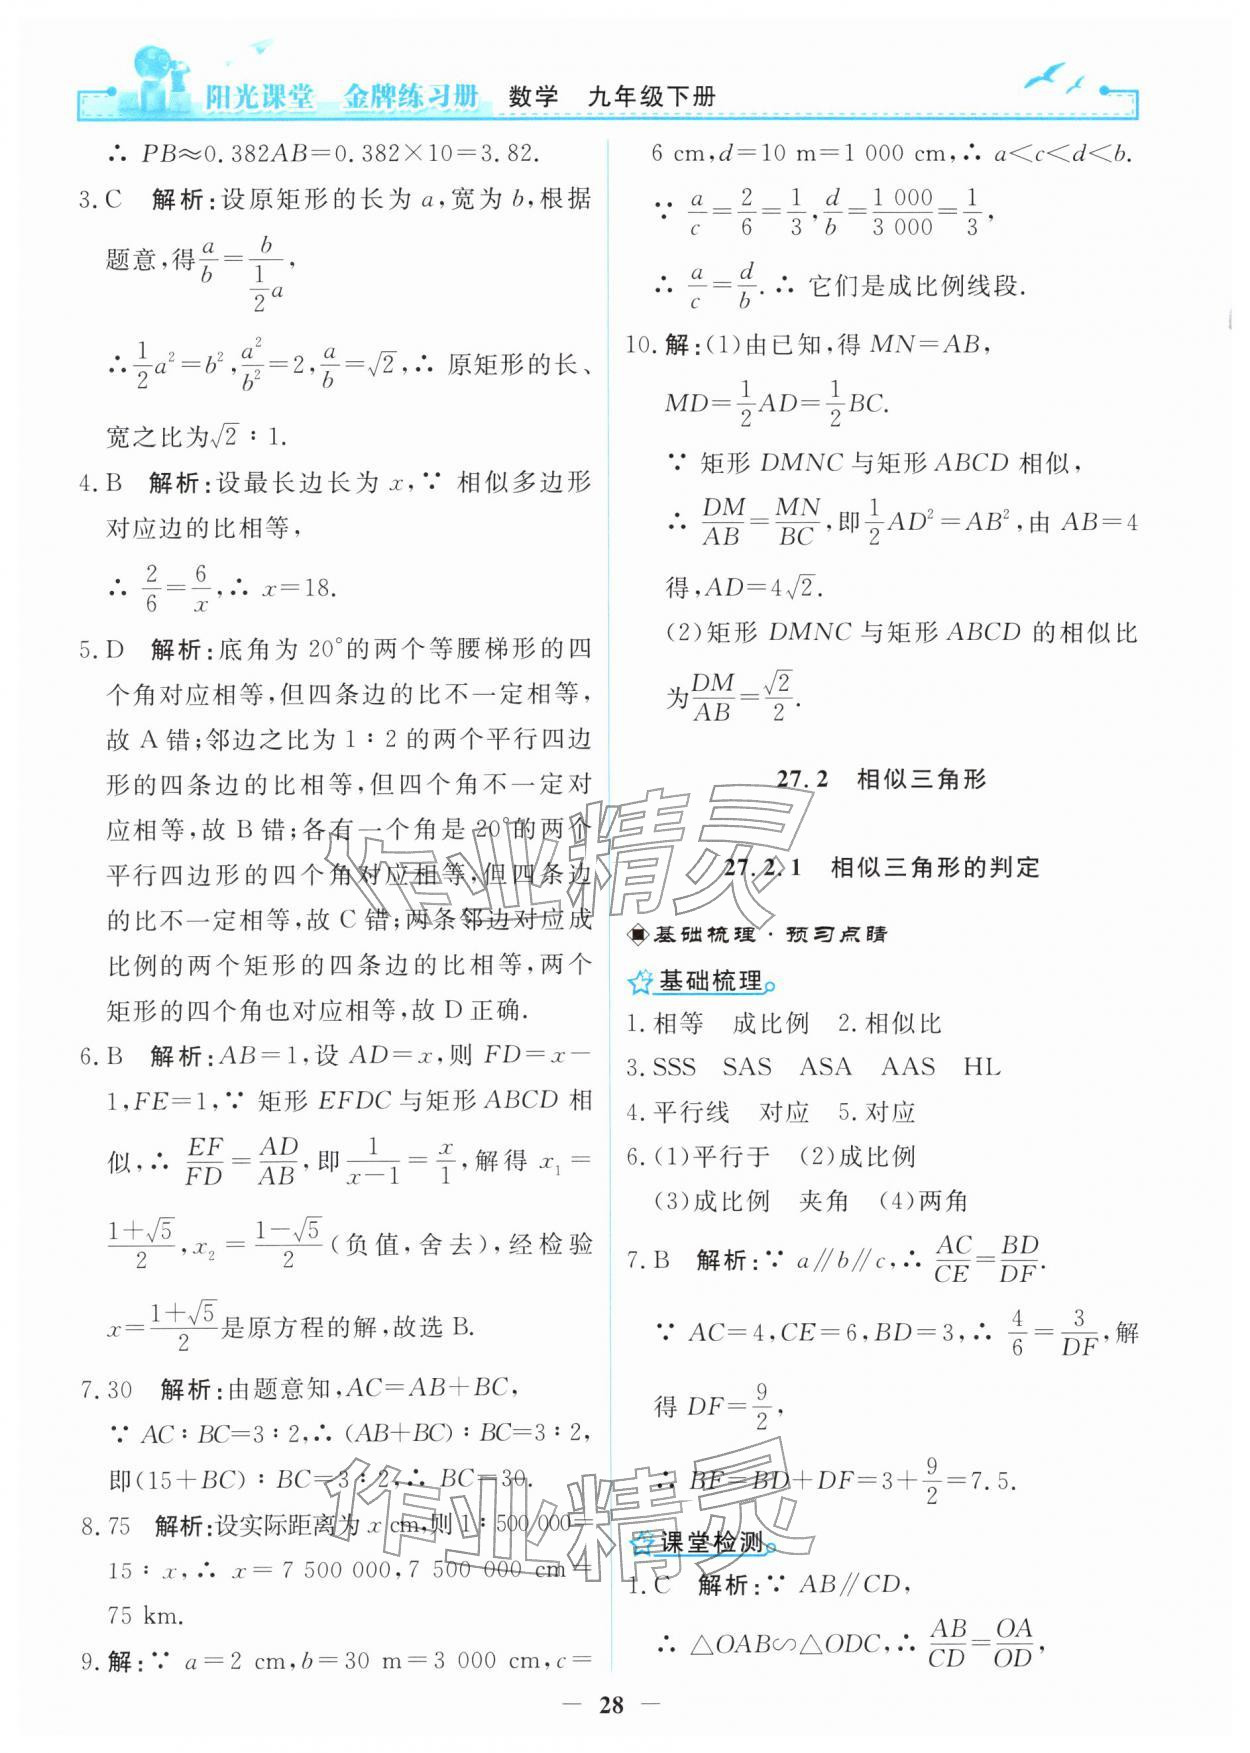 阳光课堂 金牌练习册 数学 九年级下册
∴ PB≈0.382AB=0.382×10=3.82.
3. C 解析:设原矩形的长为 a,宽为 b,根据
题意,得 a/b = b/(1/2 a),
∴ 1/2 a²=b², a²/b²=2, a/b=√2,∴ 原矩形的长、
宽之比为√2∶1.
4. B 解析:设最长边长为 x,∵ 相似多边形
对应边的比相等,
∴ 2/6=6/x,∴ x=18.
5. D 解析:底角为 20°的两个等腰梯形的四
个角对应相等,但四条边的比不一定相等,
故 A 错;邻边之比为 1∶2 的两个平行四边
形的四条边的比相等,但四个角不一定对
应相等,故 B 错;各有一个角是 20°的两个
平行四边形的四个角对应相等,但四条边
的比不一定相等,故 C 错;两条邻边对应成
比例的两个矩形的四条边的比相等,两个
矩形的四个角也对应相等,故 D 正确.
6. B 解析:AB=1,设 AD=x,则 FD=x-
1,FE=1,∵ 矩形 EFDC 与矩形 ABCD 相
似,∴ EF/FD=AD/AB,即 1/(x-1)=x/1,解得 x₁=
(1+√5)/2, x₂=(1-√5)/2(负值,舍去),经检验
x=(1+√5)/2是原方程的解,故选 B.
7. 30 解析:由题意知,AC=AB+BC,
∵ AC∶BC=3∶2,∴ (AB+BC)∶BC=3∶2,
即(15+BC)∶BC=3∶2,∴ BC=30.
8. 75 解析:设实际距离为 x cm,则 1∶500 000=
15∶x,∴ x=7 500 000,7 500 000 cm=
75 km.
9. 解:∵ a=2 cm,b=30 m=3 000 cm,c=
6 cm,d=10 m=1 000 cm,∴ a<c<d<b.
∵ a/c=2/6=1/3, d/b=1 000/3 000=1/3,
∴ a/c=d/b.∴ 它们是成比例线段.
10. 解:(1)由已知,得 MN=AB,
MD=1/2 AD=1/2 BC.
∵ 矩形 DMNC 与矩形 ABCD 相似,
∴ DM/AB=MN/BC,即 1/2 AD²=AB²,由 AB=4
得,AD=4√2.
(2)矩形 DMNC 与矩形 ABCD 的相似比
为 DM/AB=√2/2.
27.2 相似三角形
27.2.1 相似三角形的判定
基础梳理·预习点睛
基础梳理
1. 相等 成比例 2. 相似比
3. SSS SAS ASA AAS HL
4. 平行线 对应 5. 对应
6. (1)平行于 (2)成比例
(3)成比例 夹角 (4)两角
7. B 解析:∵ a∥b∥c,∴ AC/CE=BD/DF.
∵ AC=4,CE=6,BD=3,∴ 4/6=3/DF,解
得 DF=9/2,
∴ BF=BD+DF=3+9/2=7.5.
课堂检测
1. C 解析:∵ AB∥CD,
∴ △OAB∽△ODC,∴ AB/CD=OA/OD,
— 28 —
作业精灵
作业精灵